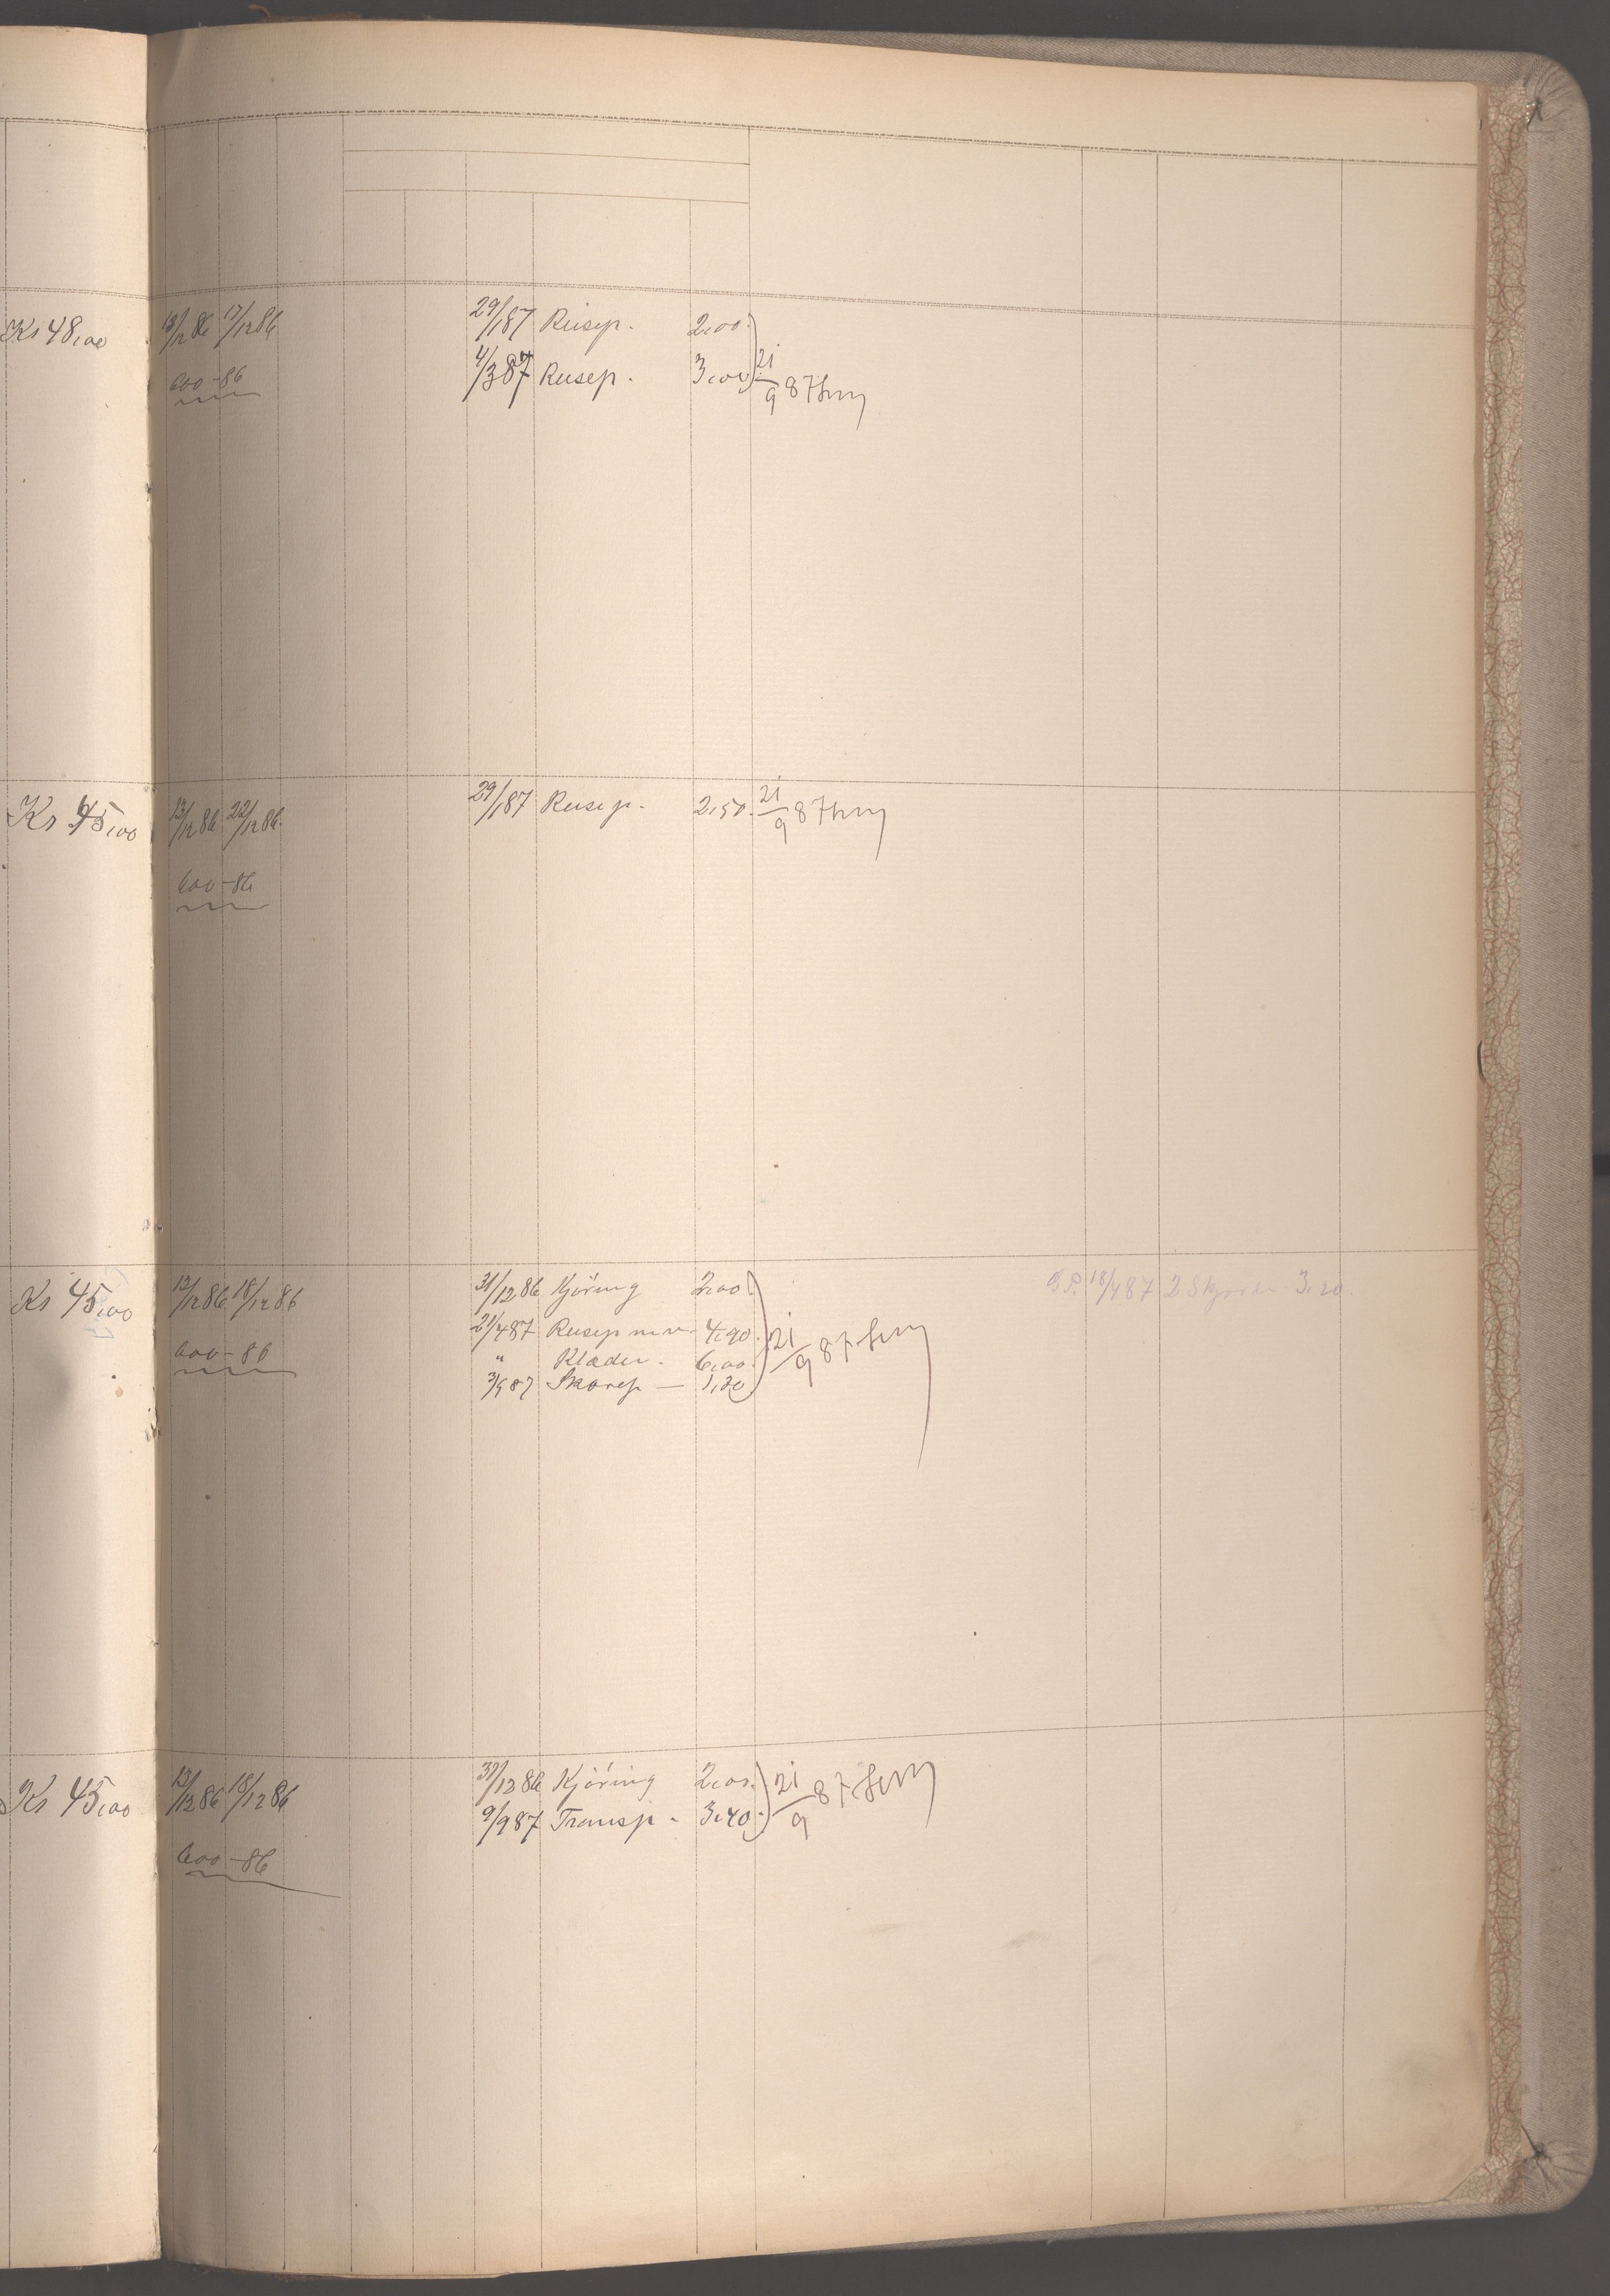 Kr 48,00 13/12 86 17/12 86 29/1 87 Reisep. 2,00
600-86 4/3 87 Reisep. 3,00 21/9 87
Kr 45,00 13/12 86 22/12 86 29/1 87 Reisep. 2,50 21/9 87
600-86
Kr 45,00 13/12 86 18/12 86 31/12 86 Kjöring 2,00 18/4 87 2 Skjorter 3,20
21/4 87 Reisep m.v. 4,90 21/9 87
600-86 " Klæder. 6,00
Skorep — 1,20
Kr 45,00 13/12 86 18/12 86 31/12 86 Kjöring 2,00 21/9 87
9/9 87 Transp. 3,40
600-86